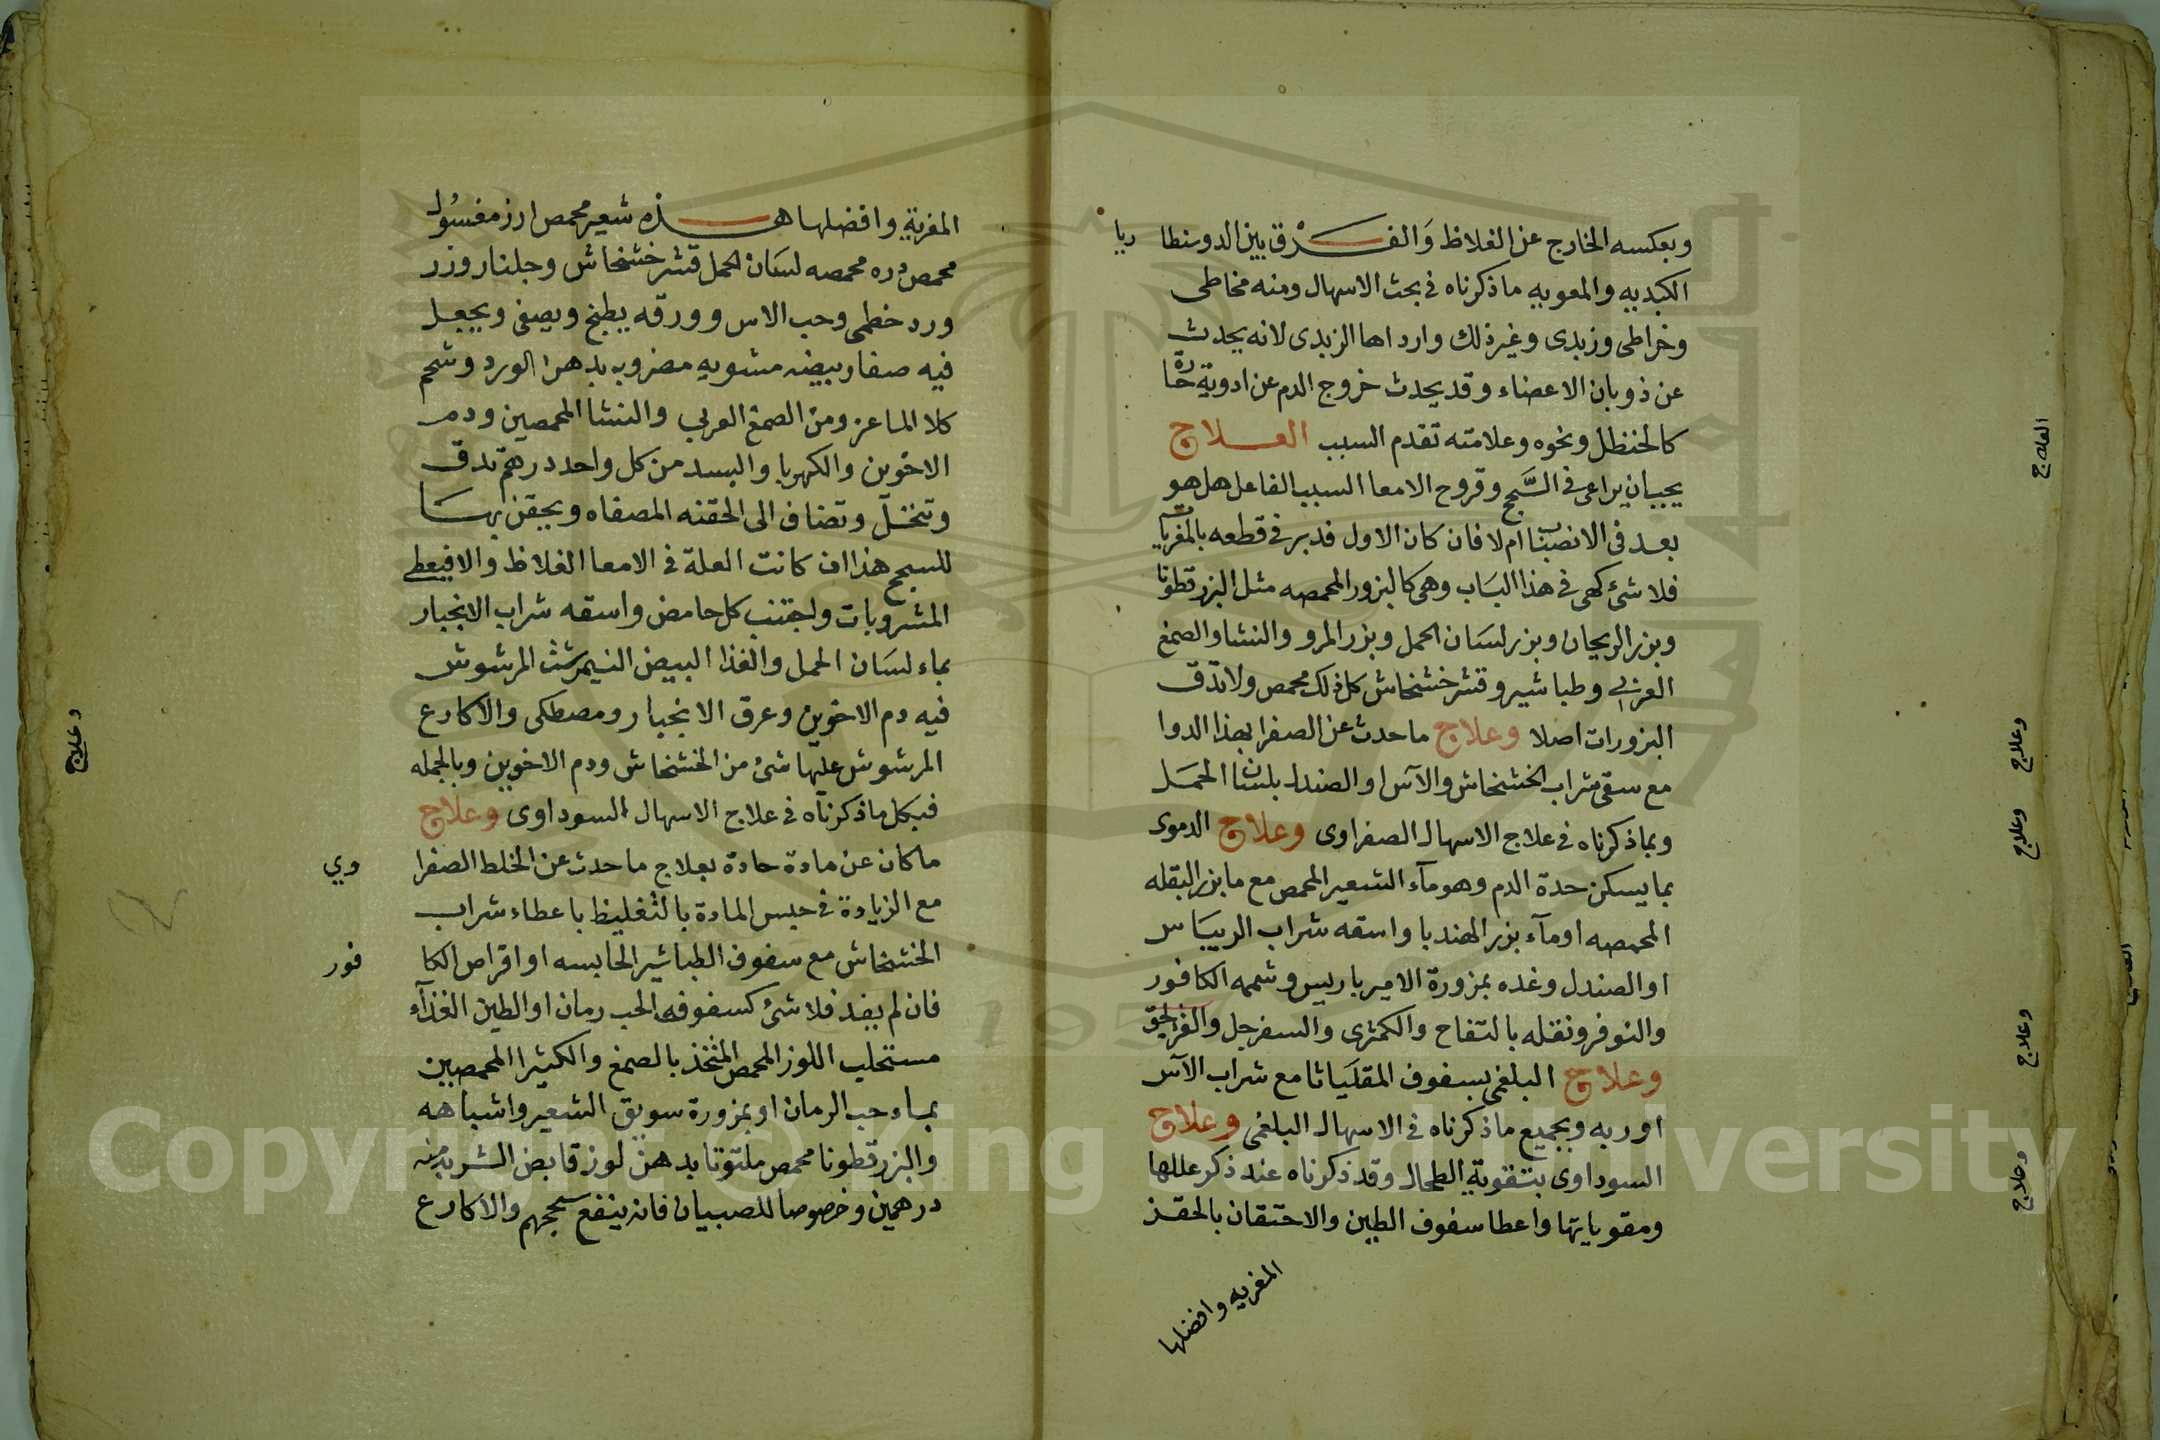 وبعكسه الخارج عن الغلاظ والفرق بين الدوسنطا ريا
الكبديه والمعويه ما ذكرناه في بحث الاسهال ومنه مخاطي
وخراطي وزبدى وغير ذلك وارداها الزبدى لانه يحدث
عن ذوبان الاعضاء وقد يحدث خروج الدم عن ادوية حارة
كالحنظل ونحوه وعلامته تقدم السبب العلاج
يجب ان يراعى في السحج وقروح الامعا السبب الفاعل هل هو
بعد في الانصباب ام لا فان كان الاول فدبر في قطعه بالمغريات
فلا شئ كهى في هذا الباب وهي كالبزور المحمصه مثل البزرقطونا
وبزر الريحان وبزر لسان الحمل وبزر المرو والنشا والصمغ
العربي وطباشير وقشر خشخاش كل ذلك محمص ولا تدق
البزورات اصلا وعلاج ما حدث عن الصفرا بهذا الدوا
مع سقى شراب الخشخاش والآس او الصندل بلسان الحمل
وبما ذكرناه في علاج الاسهال الصفراوى وعلاج الدموى
بما يسكن حدة الدم وهو مآء الشعير المحمص مع ما بزر البقله
المحمصه او مآء بزر الهندبا واسقه شراب الريباس
او الصندل وغده بمزورة الامير باريس وشممه الكافور
والنوفر ونقله بالتفاح والكمثرى والسفرجل
وعلاج البلغمى بسفوف المقلياثا مع شراب الآس
او ربه وبجميع ما ذكرناه في الاسهال البلغمى وعلاج
السوداوى بتقوية الطحال وقد ذكرناه عند ذكر عللها
ومقوياتها واعطا سفوف الطين والاحتقان بالحقن
المغريه وافضلها
العلاج
وعلاج
وعلاج
وعلاج
وعلاج
المغرية وافضلها هذه شعير محمص ارز مغسول
محمص ذره محمصه لسان الحمل قشر خشخاش وجلنار وزر
ورد خطمى وحب الاس وورقه يطبخ ويصفى ويجعل
فيه صفار بيضه مشويه مضروبه بدهن الورد وشحم
كلا الماعز ومن الصمغ العربي والنشا المحمصين ودم
الاخوين والكهربا والبسد من كل واحد درهم تدق
وتنخل وتضاف الى الحقنه المصفاه ويحقن بها
للسحج هذا ان كانت العلة في الامعا الغلاظ والا فيعطى
المشروبات ولجتنب كل حامض واسقه شراب الانجبار
بماء لسان الحمل والغذا البيض النيمرشت المرشوش
فيه دم الاخوين وعرق الانجبار ومصطكى والاكارع
المرشوش عليها شئ من الخشخاش ودم الاخوين وبالجمله
فبكل ما ذكرناه في علاج الاسهال السوداوى وعلاج
ما كان عن مادة حادة بعلاج ما حدث عن الخلط الصفرا وي
مع الزيادة في حبس المادة بالتغليظ باعطاء شراب
الخشخاش مع سفوف الطباشير الحابسه او اقراص الكا فور
فان لم يفد فلا شئ كسفوفه الحب رمان او الطين الغذآء
مستحلب اللوز المحمص المتخذ بالصمغ والكثيرا المحمصين
بماء حب الرمان او بمزورة سويق الشعير واشباهه
والبزرقطونا محمص ملتوتا بدهن لوز قابض الشربه منه
درهمين وخصوصا للصبيان فانه ينفع سحجهم والاكارع
وعلاج